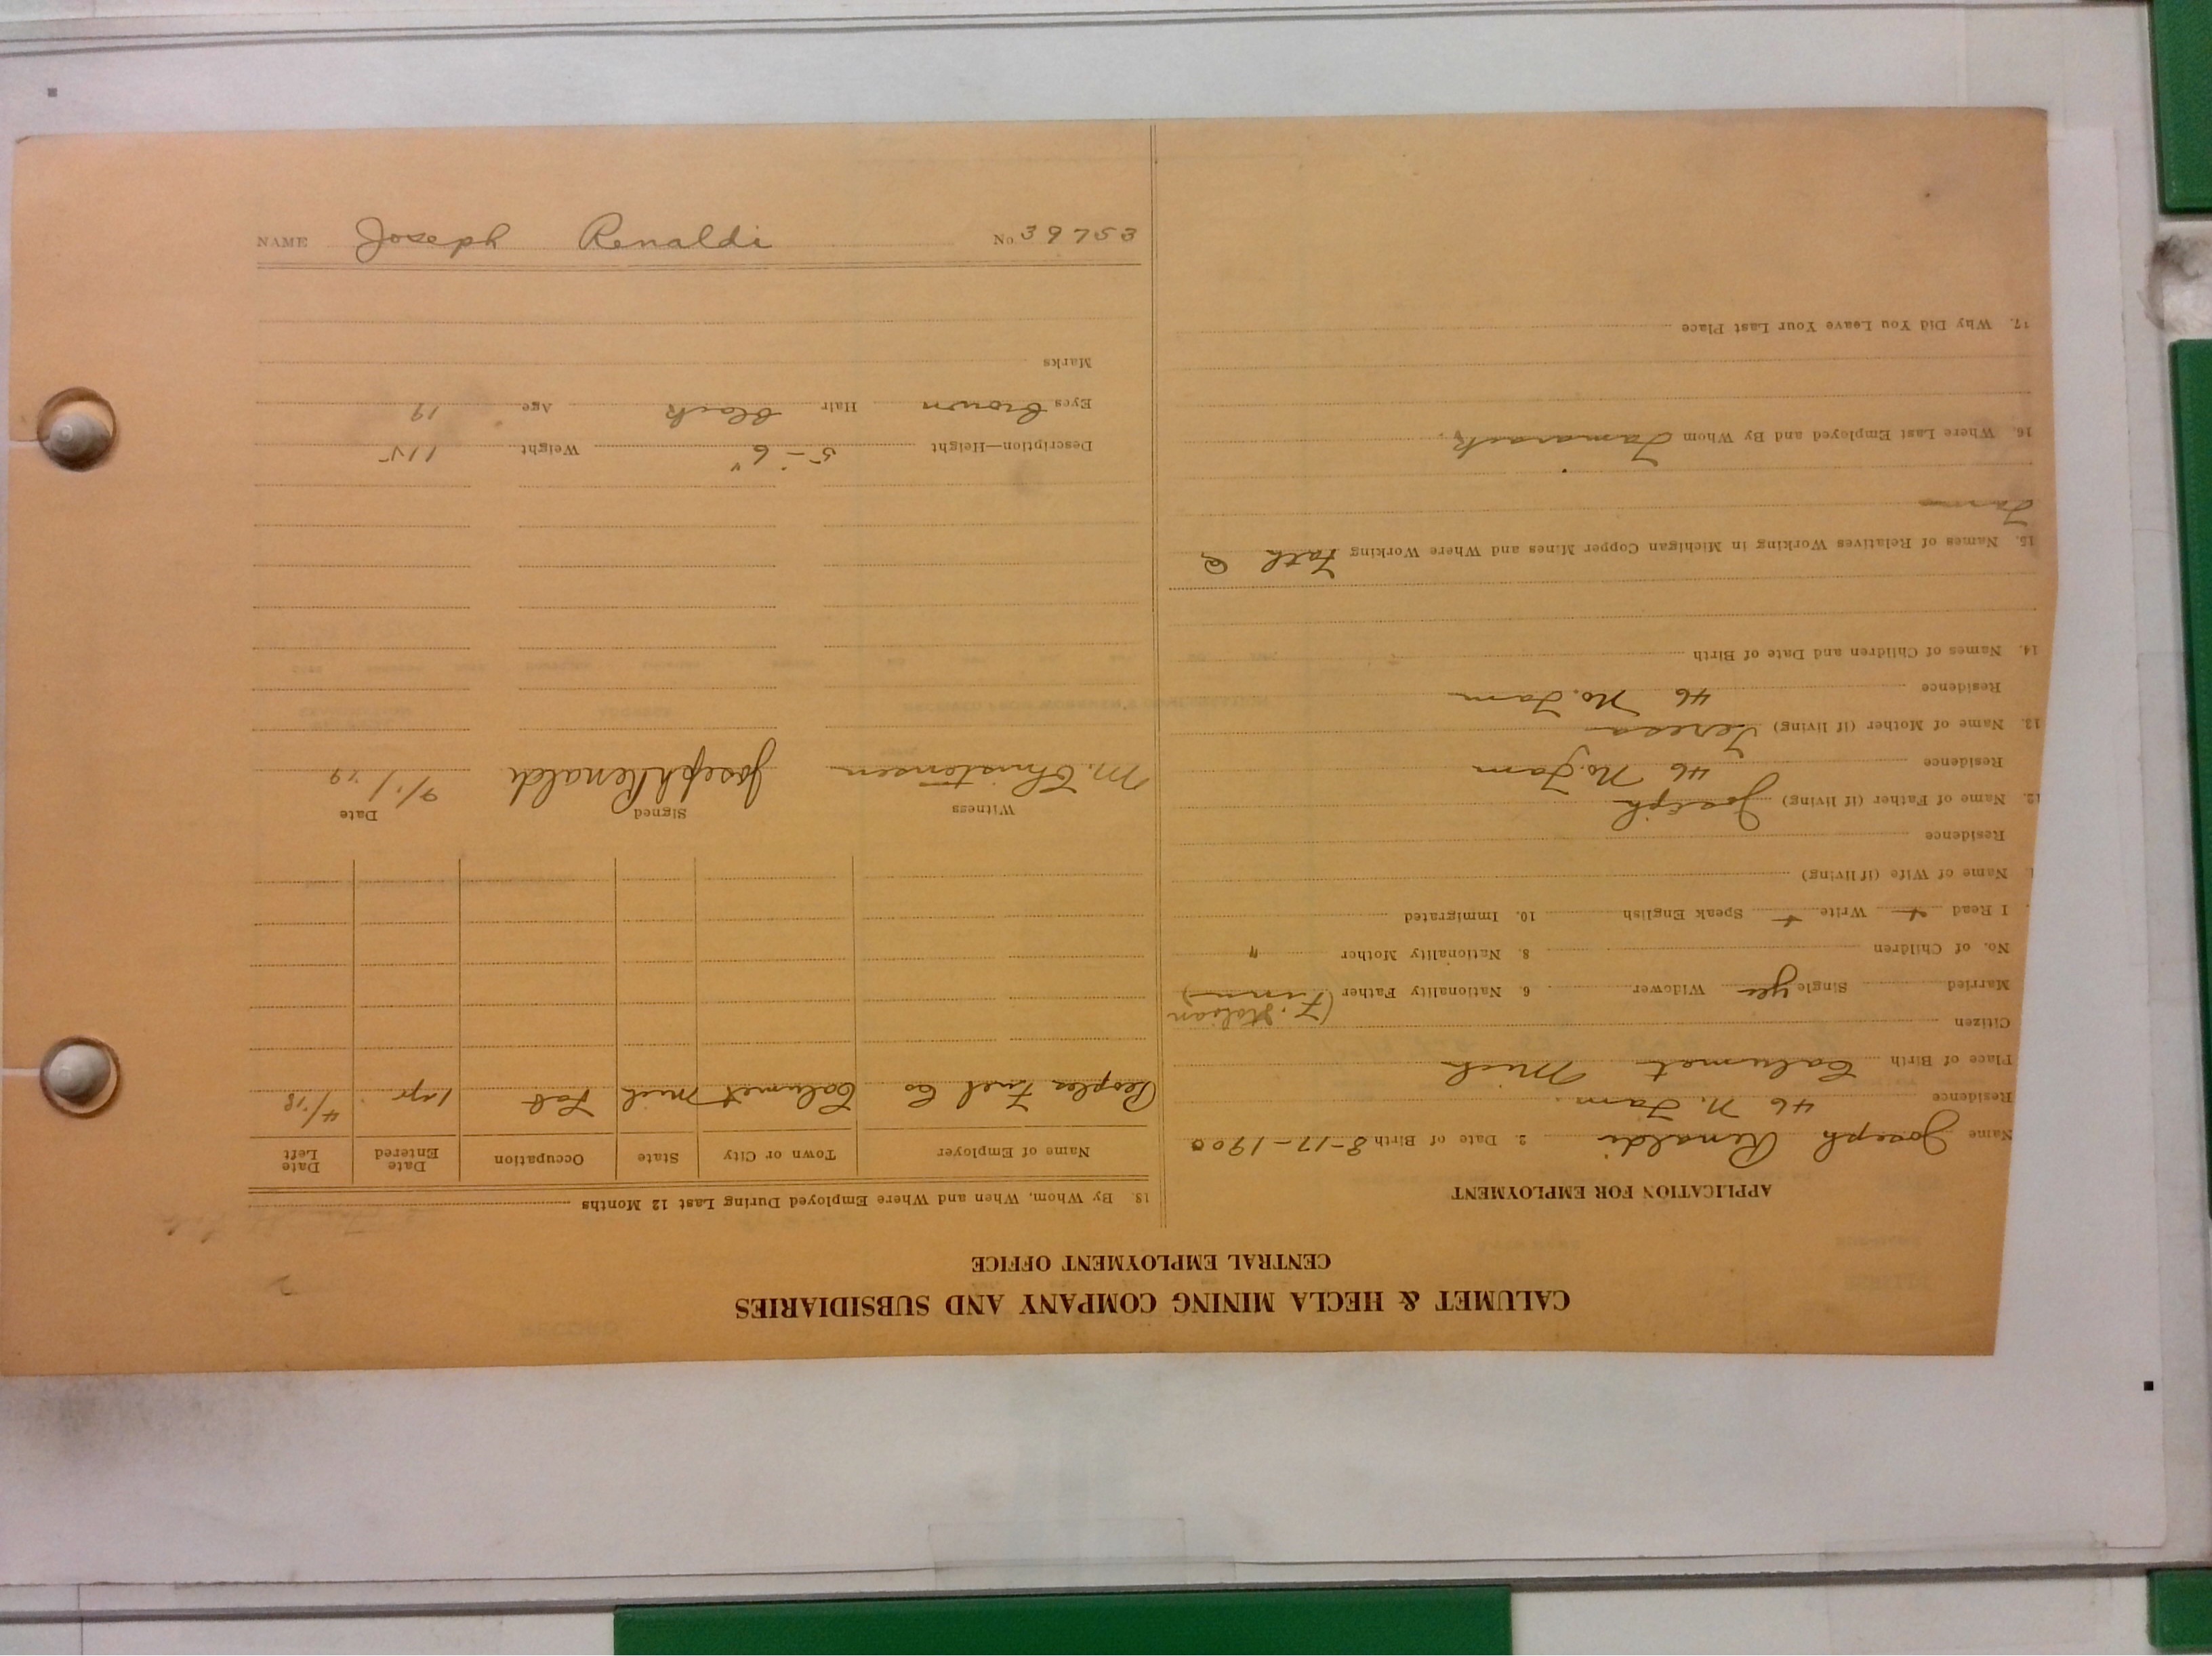 CALUMET & HECLA MINING COMPANY AND SUBSIDIARIES
CENTRAL EMPLOYMENT OFFICE
APPLICATION FOR EMPLOYMENT
Name Joseph Renaldi 2. Date of Birth 8-17-1900
Residence 46 N. Tam.
Place of Birth Calumet Mich
Citizen
Married Single yes Widower 6. Nationality Father (F. Italian
(Finn)
No. of Children 8. Nationality Mother "
I Read + Write + Speak English 10. Immigrated
Name of Wife (if living)
Residence
12. Name of Father (if living) Joseph
Residence 46 No. Tam
13. Name of Mother (if living) Teresa
Residence 46 No. Tam
14. Names of Children and Date of Birth
15. Names of Relatives Working in Michigan Copper Mines and Where Working Fath @
Tam
16. Where Last Employed and By Whom Tamarack.
17. Why Did You Leave Your Last Place
18. By Whom, When and Where Employed During Last 12 Months
Name of Employer Town or City State Occupation Date Entered Date Left
Peoples Fuel Co Calumet Mich Lab 1 yr 4/'18
Witness Signed Date
M. Christensen Joseph Renaldi 9/1/19
Description—Height 5-6" Weight 115
Eyes brown Hair black Age 19
Marks
NAME Joseph Renaldi No 39753